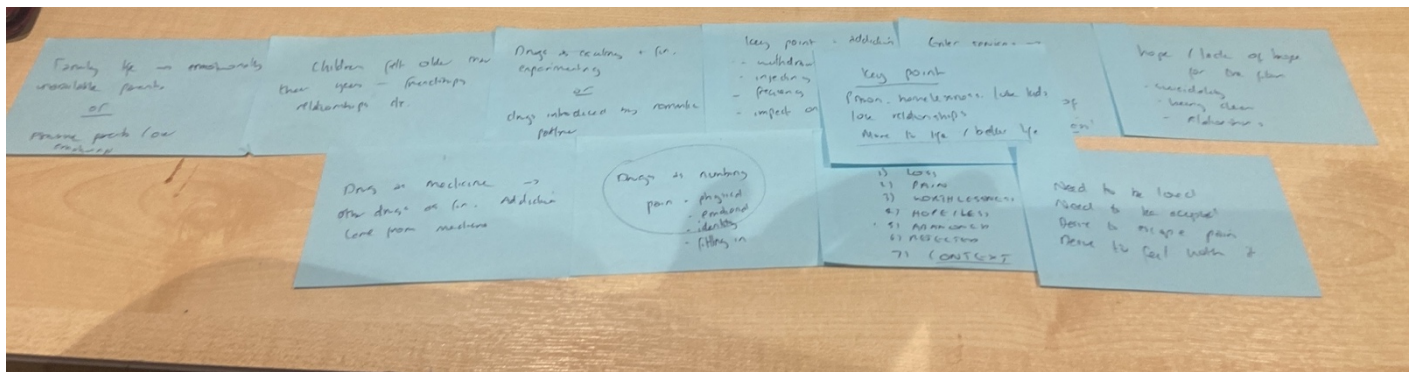 Family life → emotionally
unavailable parents
or
parents / low
Children felt older than
their years — friendships
relationships etc.
Drugs as exciting + fun.
experimenting
or
drugs introduced by romantic
partner
Key point - Addiction
- withdraw
- injecting
- frequency
- impact on
Enter services →
of
Key point
Prison, homelessness, lose kids
lose relationships
More to life / better life
hope / lack of hope
for the future
- suicidality
- being clean
- relationships
Drugs as medicine →
other drugs as fun. Addiction
came from medicine
Drugs as numbing
pain - physical
- emotional
- identity
- fitting in
1) LOSS
2) PAIN
3) WORTHLESSNESS
4) HOPE/LESS
5) ABANDONED
6) REJECTED
7) CONTEXT
Need to be loved
Need to be accepted
Desire to escape pain
Desire to feel worth it